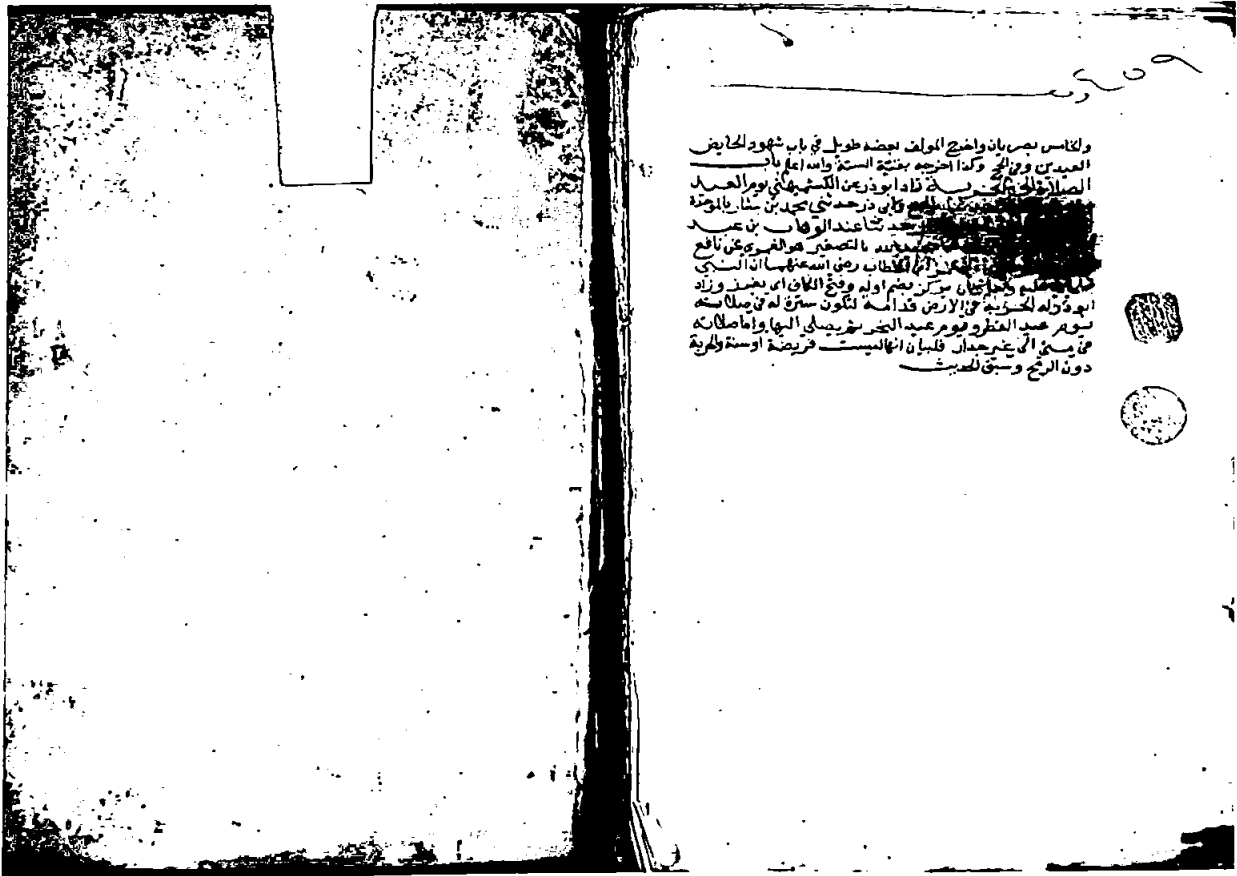 والخامس بصريان واخرج المولف بعضه طويل في باب شهود الحايض
العيدين وفي الحج وكذا اخرجه بقية الستة والله اعلم باب
الصلاة الي الحربة زاد ابو ذر عن الكشميهني يوم العيد
وابي ذر حدثني محمد بن بشار بالموحدة
حدثنا عبد الوهاب بن عبد
بالتصغير هو العمري عن نافع
الخطاب رضي الله عنهما ان النبي
عليه تركز بضم اوله وفتح الكاف اي تغرز وزاد
ابو ذر له الحربة في الارض قدامه لتكون سترة له في صلاته
يوم عيد الفطر ويوم عيد النحر ثم يصلي اليها واما صلاته
في مني الي غير جدار فلبيان انها ليست فريضة او سنة والحربة
دون الرمح وسبق الحديث